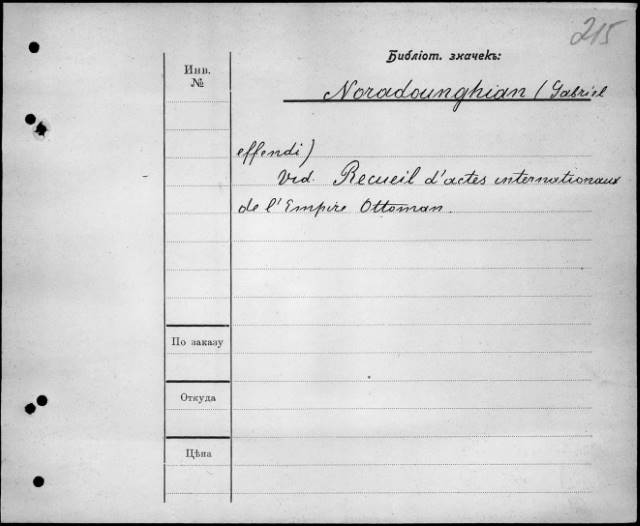 215
Библіот. значекъ:
Инв.
№
Noradounghian (Gabriel
effendi)
Vid. Recueil d'actes internationaux
de l'Empire Ottoman.
По заказу
Откуда
Цѣна